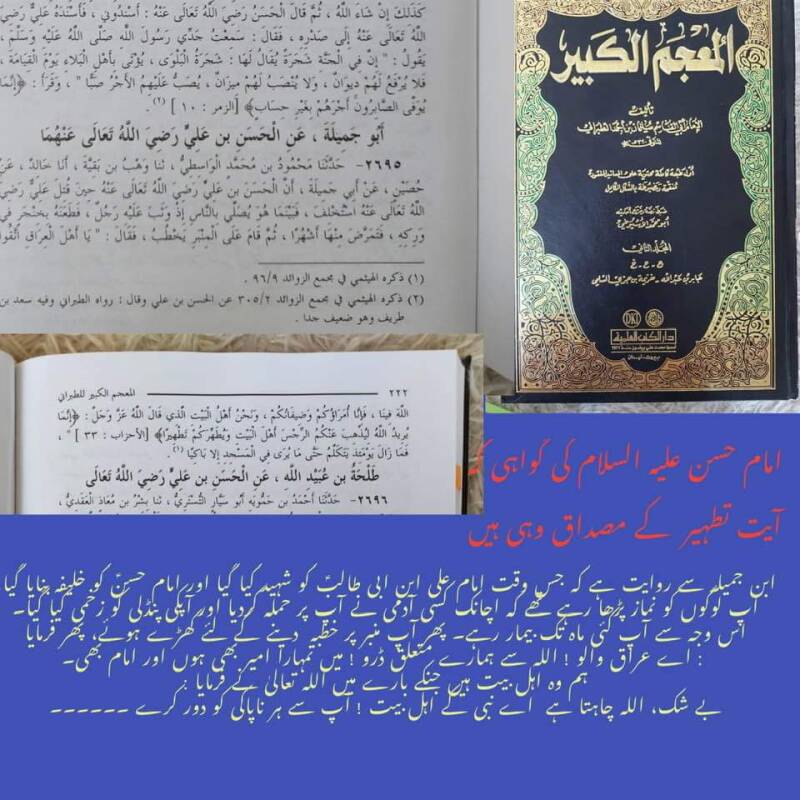 كذلك إن شاء الله ، ثم قال الحسن رضي الله تعالى عنه : أسندوني ، فأسنده علي رضي
الله تعالى عنه إلى صدره ، فقال : سمعت جدي رسول الله صلى الله عليه وسلم،
يقول : " إن في الجنة شجرة يقال لها : شجرة البلوى ، يؤتى بأهل البلاء يوم القيامة،
فلا يرفع لهم ديوان ، ولا ينصب لهم ميزان ، يصب عليهم الأجر صبا " ، وقرأ : ﴿إنما
يوفى الصابرون أجرهم بغير حساب﴾ [الزمر : ١٠] (٢).
أبو جميلة ، عن الحسن بن علي رضي الله تعالى عنهما
٢٦٩٥- حدثنا محمود بن محمد الواسطي، ثنا وهب بن بقية ، أنا خالد ، عن
حصين ، عن أبي جميلة ، أن الحسن بن علي رضي الله تعالى عنه حين قتل علي رضي
الله تعالى عنه استخلف ، فبينما هو يصلي بالناس إذ وثب عليه رجل ، فطعنه بخنجر في
وركه ، فتمرض منها أشهرا ، ثم قام على المنبر يخطب ، فقال : " يا أهل العراق اتقوا
(١) ذكره الهيثمي في مجمع الزوائد ٩٦/٩.
(٢) ذكره الهيثمي في مجمع الزوائد ٣٠٥/٢ عن الحسن بن علي وقال : رواه الطبراني وفيه سعد بن
طريف وهو ضعيف جدا .
المعجم الكبير
تأليف
الإمام أبي القاسم سليمان بن أحمد الطبراني
المجلد الثاني
ج - ح - خ
جابر بن عبد الله - خزيمة بن جزي السلمي
DKi
دار الكتب العلمية
٢٢٢ المعجم الكبير للطبراني
الله فينا ، فإنا أمراؤكم وضيفانكم ، ونحن أهل البيت الذي قال الله عز وجل : ﴿إنما
يريد الله ليذهب عنكم الرجس أهل البيت ويطهركم تطهيرا﴾ [الأحزاب : ٣٣] " ،
فما زال يومئذ يتكلم حتى ما يرى في المسجد إلا باكيا (١).
طلحة بن عبيد الله ، عن الحسن بن علي رضي الله تعالى
٢٦٩٦- حدثنا أحمد بن حمويه أبو سيار التستري ، ثنا بشر بن معاذ العقدي،
امام حسن علیہ السلام کی گواہی کہ
آیت تطہیر کے مصداق وہی ہیں
ابن جمیلہ سے روایت ہے کہ جس وقت امام علی ابن ابی طالبؑ کو شہید کیا گیا اور امام حسنؑ کو خلیفہ بنایا گیا
آپ لوگوں کو نماز پڑھا رہے تھے کہ اچانک کسی آدمی نے آپ پر حملہ کردیا اور آپکی پنڈلی کو زخمی کیا گیا۔
اس وجہ سے آپ کئی ماہ تک بیمار رہے۔ پھر آپ منبر پر خطبہ دینے کے لئے کھڑے ہوئے، پھر فرمایا
: اے عراق والو ! اللہ سے ہمارے متعلق ڈرو ! میں تمہارا امیر بھی ہوں اور امام بھی۔
ہم وہ اہل بیت ہیں جنکے بارے میں اللہ تعالیٰ نے فرمایا :
بے شک، اللہ چاہتا ہے اے نبی کے اہل بیت ! آپ سے ہر ناپاکی کو دور کرے ------